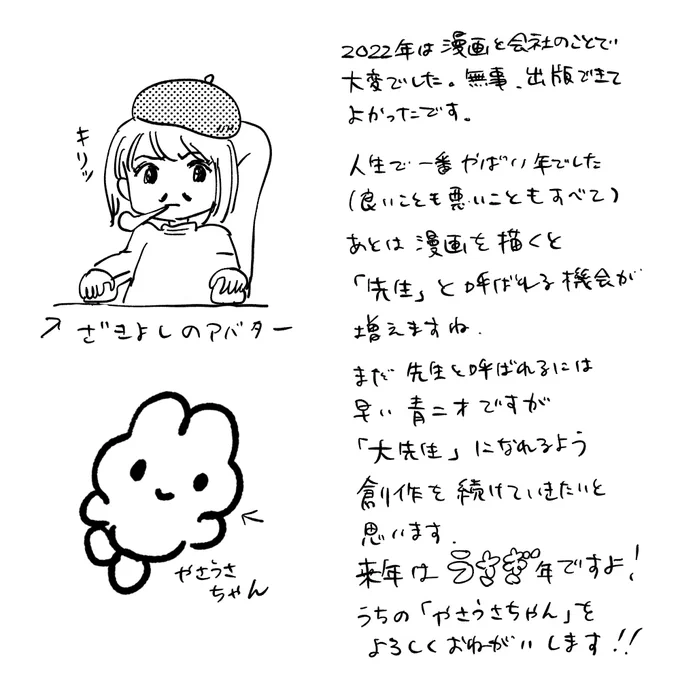 キリッ
↗ ざきよしのアバター
やさうさ
ちゃん
2022年は漫画と会社のことで
大変でした。無事、出版できて
よかったです。
人生で一番やばい年でした
(良いことも悪いこともすべて)
あとは漫画を描くと
「先生」と呼ばれる機会が
増えますね.
まだ先生と呼ばれるには
早い青二才ですが
「大先生」になれるよう
創作を続けていきたいと
思います.
来年はうさぎ年ですよ!
うちの「やさうさちゃん」を
よろしくおねがいします!!